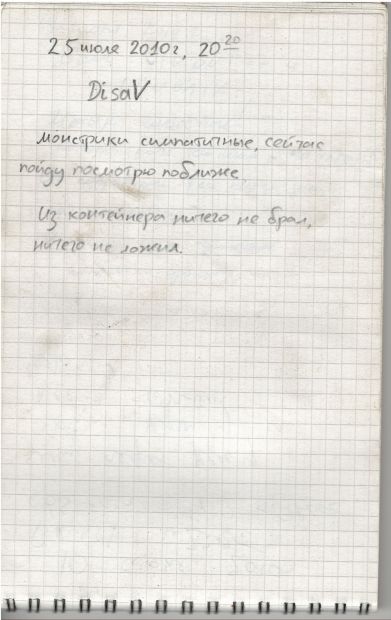 25 июля 2010г, 20 20
DisaV
монстрики симпатичные, сейчас
пойду посмотрю поближе
Из контейнера ничего не брал,
ничего не ложил.